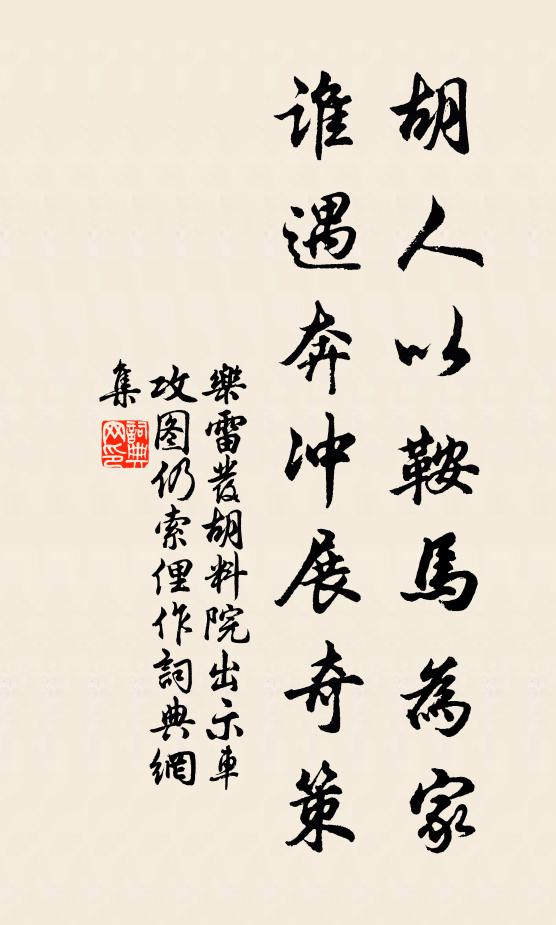 胡人以鞍馬為家
誰遇奔冲展奇策
樂雷發胡料院出示車
攻图仍索俚作詞典網
集
詞典网印